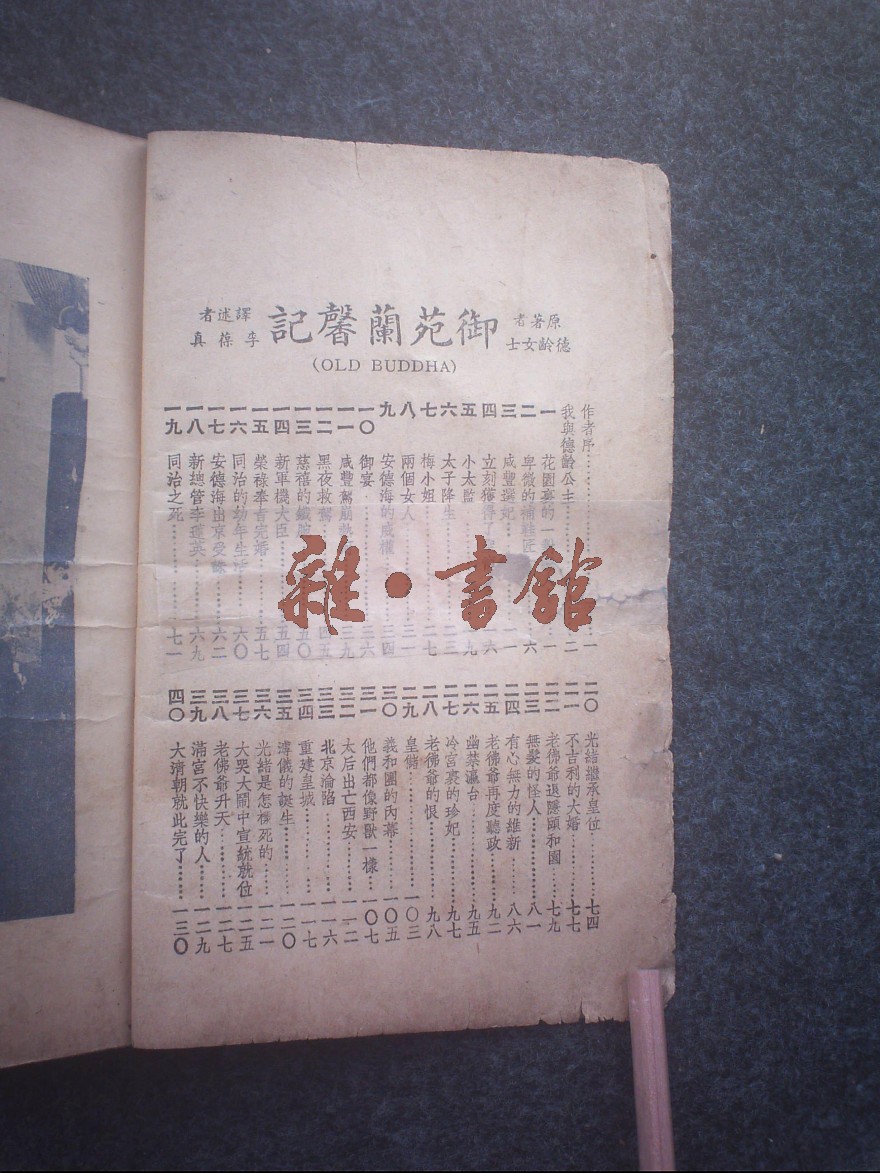 原著者
德齡女士
御苑蘭馨記
譯述者
李葆真
(OLD BUDDHA)
作者序………一
我與德齡公主………二
一 花園裏的一……一
二 卑微的補鞋匠……六
三 咸豐選妃……一一
四 立刻獲得了……一六
五 小太監……一九
六 太子降生……二三
七 梅小姐……二七
八 兩個女人……三一
九 安德海的威權……三四
一〇 御宴……三六
一一 咸豐駕崩……三九
一二 黑夜救駕……四五
一三 慈禧的……五〇
一四 新軍機大臣……五四
一五 榮祿奉旨完婚……五七
一六 同治的幼年生活……六〇
一七 安德海出京受……六二
一八 新總管李蓮英……六九
一九 同治之死……七一
二〇 光緒繼承皇位……七四
二一 不吉利的大婚……七七
二二 老佛爺退隱頤和園……七九
二三 無髮的怪人……八一
二四 有心無力的維新……八六
二五 老佛爺再度聽政……九二
二六 幽禁瀛台……九五
二七 冷宮裏的珍妃……九七
二八 老佛爺的恨……九八
二九 皇儲……一〇三
三〇 義和團的內幕……一〇五
三一 他們都像野獸一樣……一〇七
三二 太后出亡西安……一一二
三三 北京淪陷……一一六
三四 重建皇城……一一七
三五 溥儀的誕生……一二〇
三六 光緒是怎樣死的……一二一
三七 大哭大鬧中宣統就位……一二五
三八 老佛爺升天……一二七
三九 滿宮不快樂的人……一二九
四〇 大清朝就此完了……一三〇
雜·書館